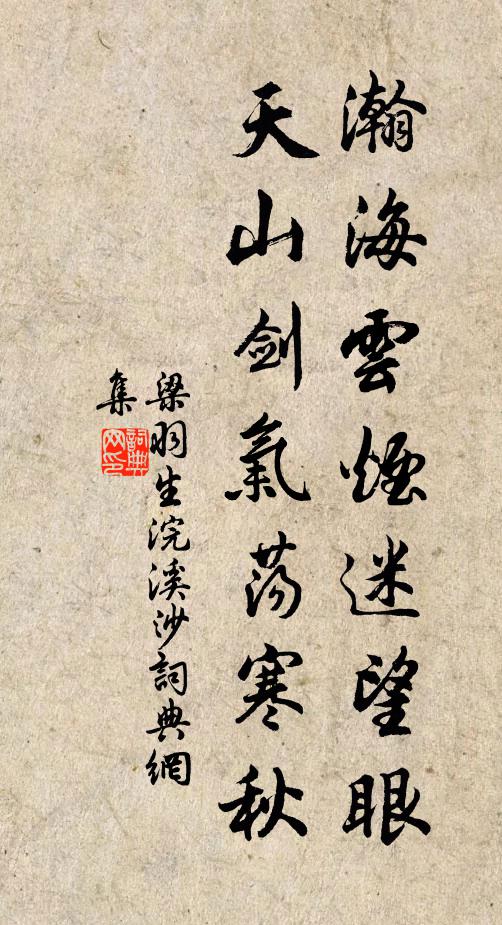 瀚海雲煙迷望眼
天山剑氣荡寒秋
梁羽生浣溪沙詞典網
集
詞典網印